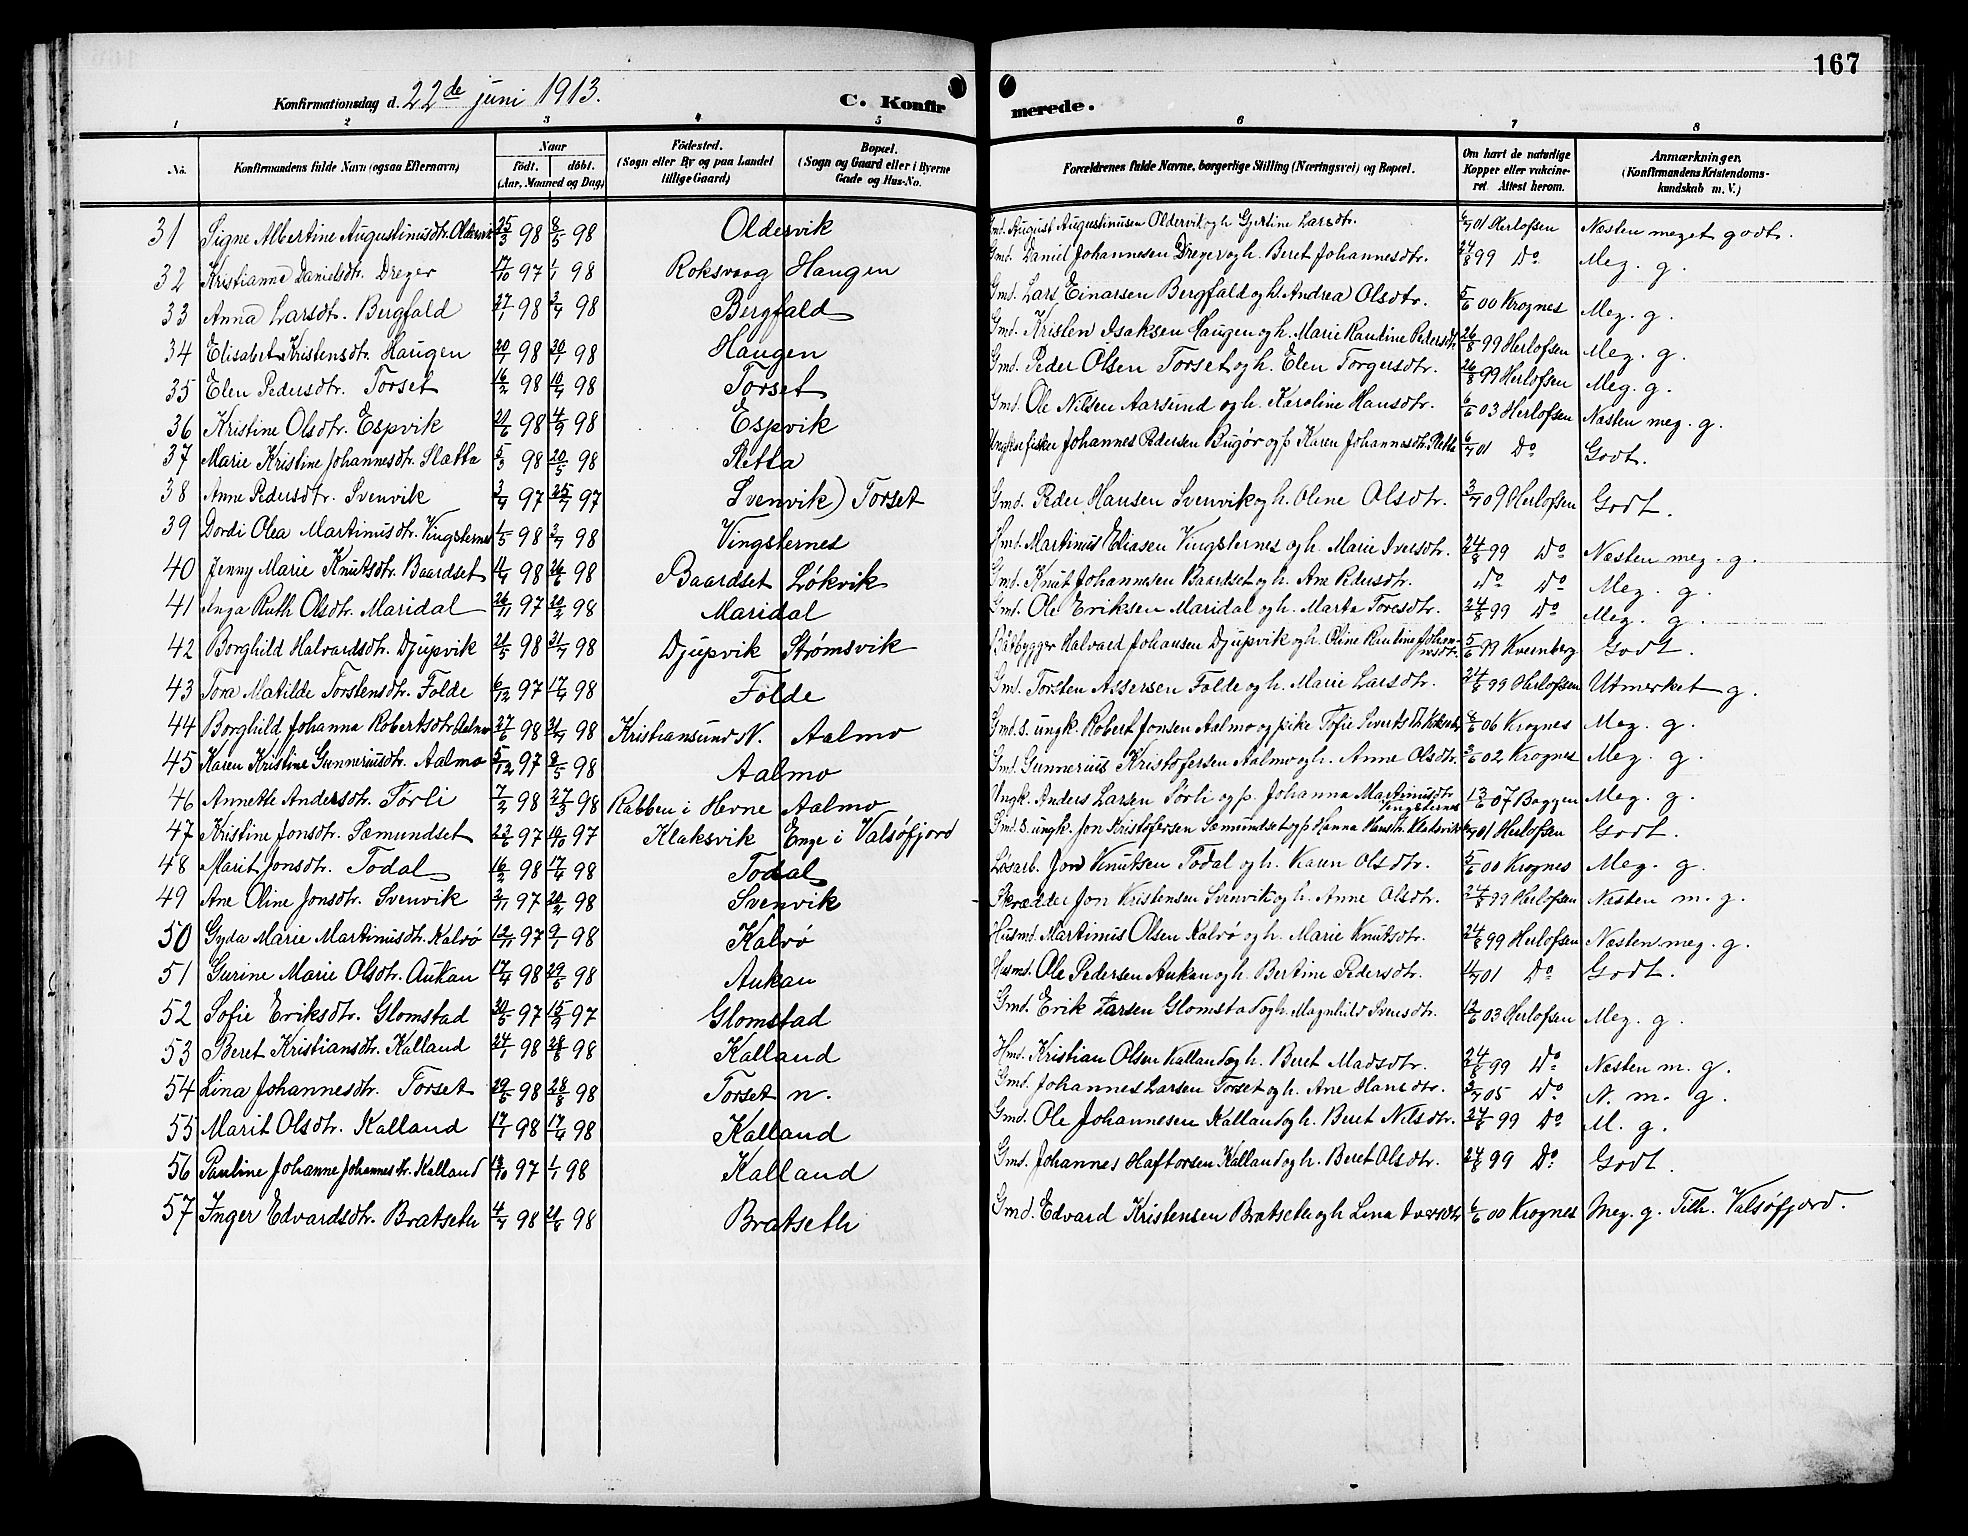 167
Konfirmationsdag d. 22de juni 1913. C. Konfirmerede.
1 2 3 4 5 6 7 8
No. Konfirmandens fulde Navn (ogsaa Efternavn) Naar födt. döbt. (Aar, Maaned og Dag) Födested. (Sogn eller By og paa Landet tillige Gaard) Bopæl. (Sogn og Gaard eller i Byerne Gade og Hus-No. Forældrenes fulde Navne, borgerlige Stilling (Næringsvei) og Bopæl. Om havt de naturlige Kopper eller vakcineret Attest herom. Anmærkninger, (Konfirmandens Kristendomskundskab m. V.)
31 Signe Albertine Augustinusdtr. Oldervik 25/3 98 8/5 98 Oldervik Gmd. August Augustinusen Oldervik og h. Gjertine Larsdtr. 01 Herlofsen Næsten meget godt.
32 Kristianne Danielsdtr. Dreger 17/10 97 1/1 98 Roksvaag Haugen Gmd. Daniel Johannesen Dreger og h. Beret Johannesdtr. 24/8 99 Do Meg. g.
33 Anna Larsdt. Bergfald 27/1 98 3/4 98 Bergfald Gmd. Lars Einarsen Bergfald og h. Andrea Olsdtr. 5/6 00 Krognes Meg. g.
34 Elisabet Kristensdtr. Haugen 20/1 98 98 Haugen Gmd. Kristen Isaksen Haugen og h. Marie Raudine Pedersdtr. 26/8 99 Herlofsen Meg. g.
35 Elen Pedersdtr. Torset 16/2 98 10/4 98 Torset Gmd. Peder Olsen Torset og h. Elen Torgersdtr. 26/8 99 Herlofsen Meg. g.
36 Kristine Olsdtr. Espvik 98 98 Espvik Gmd. Ole Nilsen Aarsund og h. Karoline Hansdtr. 6/6 03 Herlofsen Næsten meg. g.
37 Marie Kristine Johannesdtr. Slatta 5/3 98 20/5 98 Sletta Ungkar fisker Johannes Pedersen Bugör og p. Karen Johannesdtr. Sletta 01 Do Godt.
38 Anne Pedersdtr. Svenvik 97 25/7 97 Svenvik) Torset Gmd. Peder Hansen Svenvik og h. Oline Olsdtr. 3/7 09 Herlofsen Godt.
39 Dordi Olea Martinusdtr. Vingsternes 1/5 98 3/7 98 Vingsternes Hmd. Martinus Eliasen Vingsternes og h. Marie Iversdtr. 24/8 99 Do Næsten meg. g.
40 Jenny Marie Knutsdtr. Baardset 98 26/6 98 Baardset Lökvik Gmd. Knut Johannesen Baardset og h. Ane Pedersdtr. Do Do Meg. g.
41 Inga Ruth Olsdtr. Maridal 26/11 97 20/2 98 Maridal Gmd. Ole Eriksen Maridal og h. Marta Toresdtr. 24/8 99 Do Meg. g.
42 Borghild Halvardsdtr. Djupvik 21/5 98 31/7 98 Djupvik Strømsvik Båtbygger Halvard Johansen Djupvik og h. Oline Pauline Johannesdtr. 5/6 Kvernberg Godt.
43 Tora Matilde Torstensdtr. Folde 6/12 97 17/4 98 Folde Gmd. Torsten Assersen Folde og h. Marie Larsdtr. 24/8 99 Herlofsen Utmerket g.
44 Borghild Johanna Robertsdtr. Aalmo 27/6 98 31/7 98 Kristiansund N. Aalmo Gmd. s. ungk. Robert Jonsen Aalmo og pike Sofie Sivertsdt. 06 Krognes Meg. g.
45 Karen Kristine Gunneriusdtr. Aalmo 5/12 97 8/5 98 Aalmo Gmd. Gunnerius Kristofersen Aalmo og h. Anne Olsdtr. 3/6 02 Krognes Meg. g.
46 Annette Andersdtr. Törli 7/2 98 27/3 98 Rabben i Hevne Aalmo Ungk. Anders Larsen Törli og p. Johanna Martinusdtr. Vingsternes 13/6 07 Baggen Meg. g.
47 Kristine Jonsdtr. Sæmundset 97 97 Klaksvik Enge i Valsöfjord Gmd. s. ungk. Jon Kristofersen Sæmundset og p. Hanna Hansdtr. Klaksvik 01 Herlofsen Godt.
48 Marit Jonsdtr. Todal 16/2 98 17/4 98 Todal Løsarb. Jon Knutsen Todal og h. Karen Olsdtr. 5/6 00 Krognes Meg. g.
49 Ane Oline Jonsdtr. Svenvik 97 20/2 98 Svenvik Skrædder Jon Kristensen Svenvik og h. Anne Olsdtr. 24/8 99 Herlofsen Næsten m. g.
50 Gyda Marie Martinusdtr. Kalvö 12/11 97 9/1 98 Kalvö Husmd. Martinus Olsen Kalvö og h. Marie Knutsdtr. 24/8 99 Herlofsen Næsten meg. g.
51 Gurine Marie Olsdtr. Aukan 17/4 98 98 Aukan Husmd. Ole Pedersen Aukan og h. Bertine Pedersdtr. 01 Do Godt.
52 Sofie Eriksdtr. Glomstad 97 97 Glomstad Gmd. Erik Larsen Glomstad og h. Magnhild Svensdtr. 12/6 03 Herlofsen Meg. g.
53 Beret Kristiansdtr. Kalland 24/1 98 28/8 98 Kalland Hmd. Kristian Olsen Kalland og h. Beret Madsdtr. 24/8 99 Do Næsten m. g.
54 Lina Johannesdtr. Torset 98 28/8 98 Torset n. Gmd. Johannes Larsen Torset og h. Ane Hansdtr. 3/7 05 Do N. m. g.
55 Marit Olsdtr. Kalland 17/1 98 17/4 98 Kalland Gmd. Ole Johannesen Kalland og h. Beret Nilsdtr. 24/8 99 Do M. g.
56 Pauline Johanne Johannesdtr. Kalland 97 1/1 98 Kalland Gmd. Johannes Haftorsen Kalland og h. Beret Olsdtr. 24/8 99 Do Godt.
57 Inger Edvardsdtr. Bratseth 98 98 Bratseth Gmd. Edvard Kristensen Bratseth og h Lina Iversdtr 00 Krognes Meg. g. Tilh. Valsöfjord.